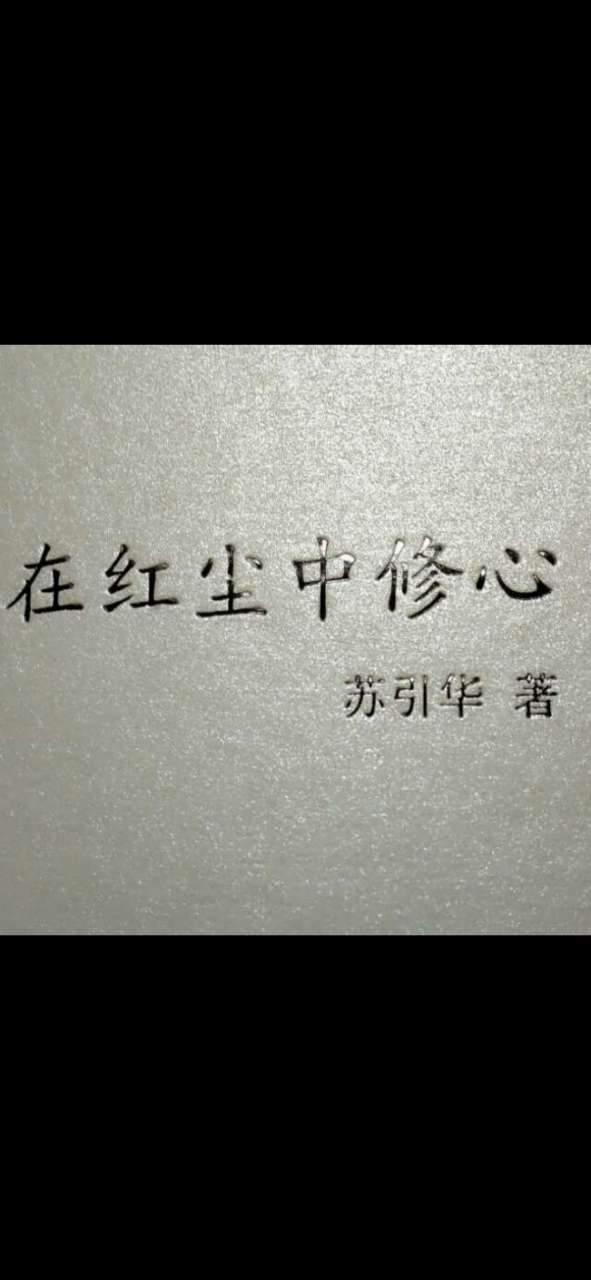 在红尘中修心
苏引华 著